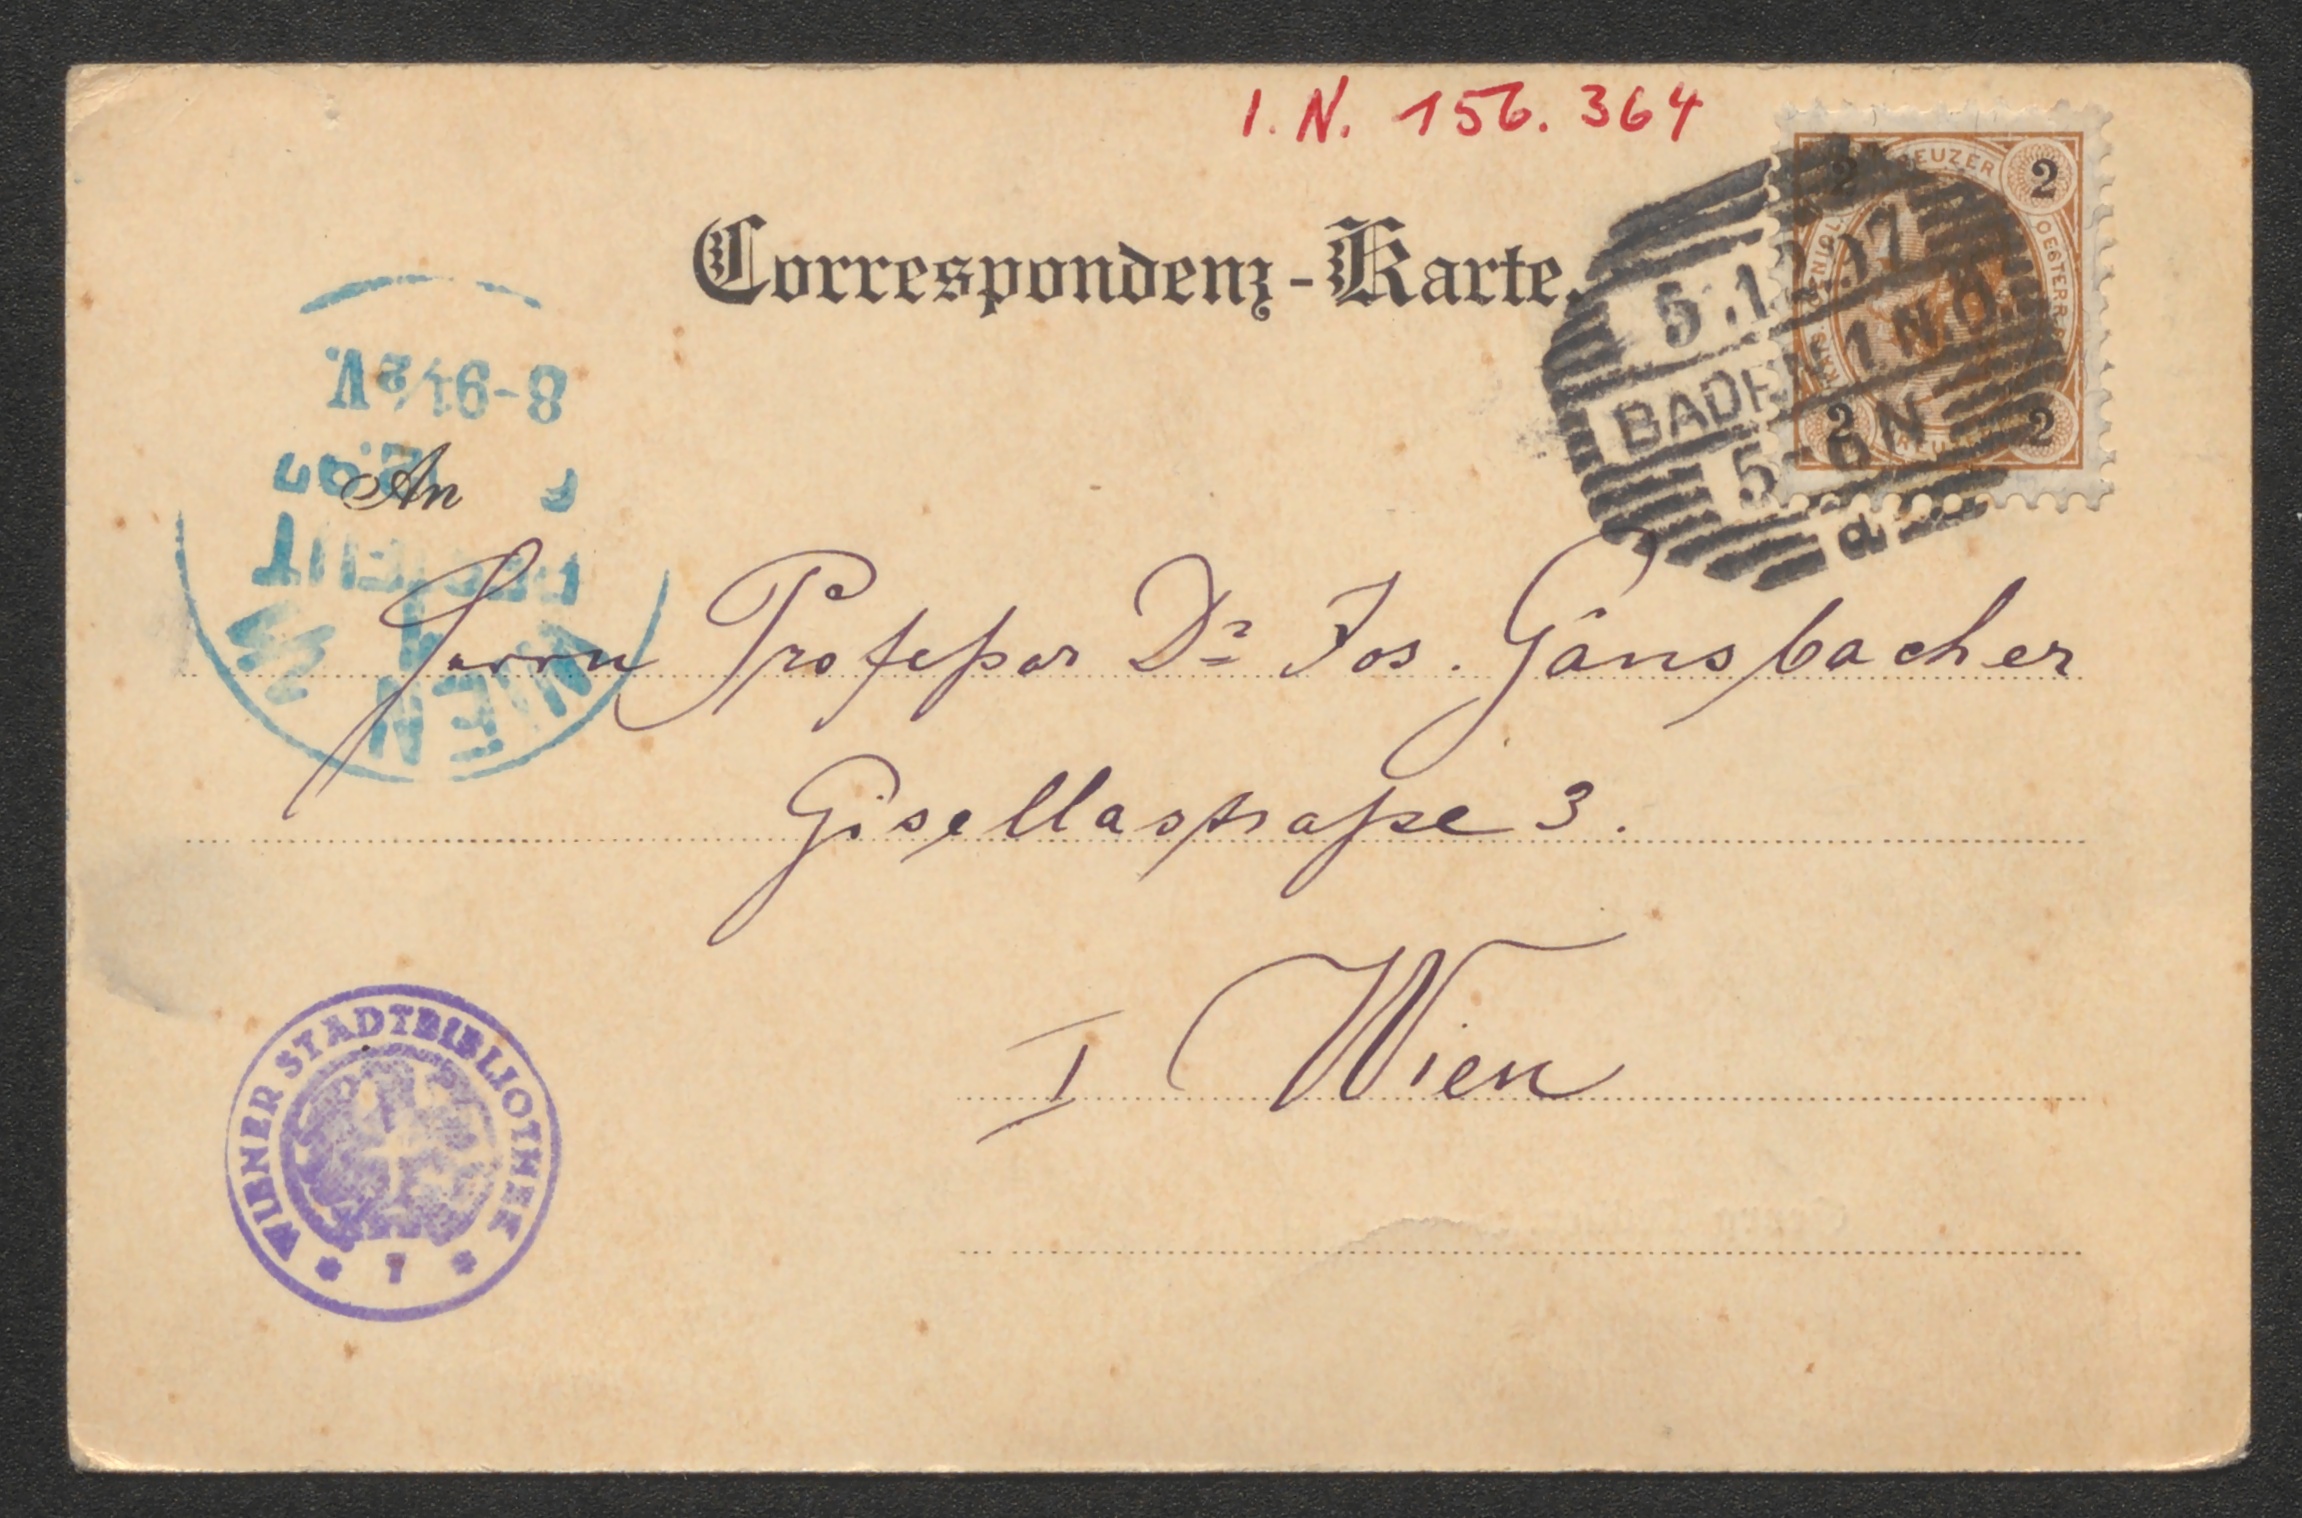 I. N. 156.364
Correspondenz-Karte.
KREUZER
2 2
OESTERR.
2 2
5.12.97
BADEN 1 N.Ö.
5-6N
d
8-9½V.
An
BESTELLT
WIEN
Herrn Professor Dr Jos. Gänsbacher
Gisellastraße 3.
I Wien
WIENER STADTBIBLIOTHEK
* 7 *